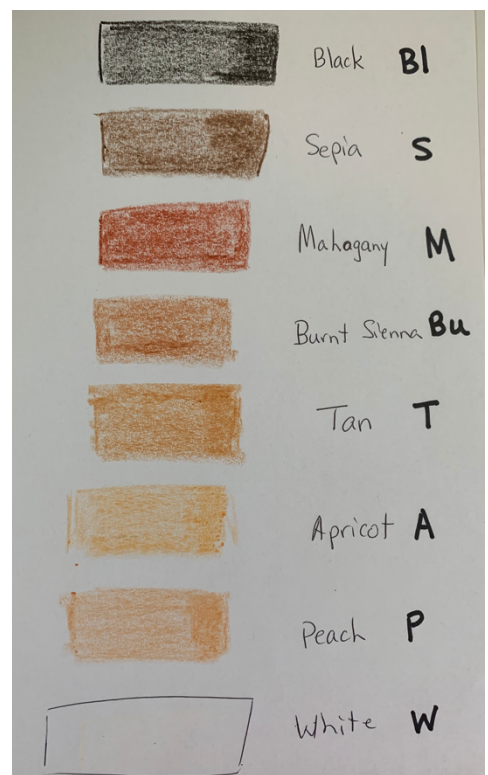 Black Bl
Sepia S
Mahogany M
Burnt Sienna Bu
Tan T
Apricot A
Peach P
White W